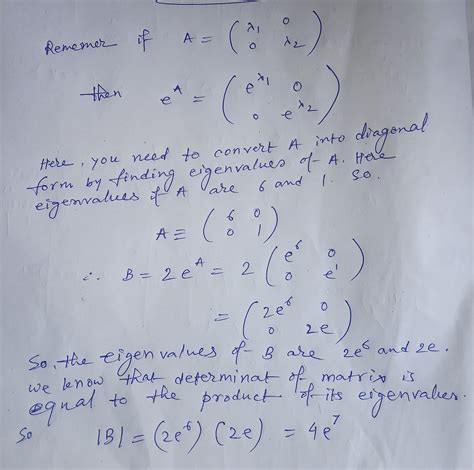 Rememer if A = ( λ1 0 0 λ2 )
then e^A = ( e^λ1 0 0 e^λ2 )
Here, you need to convert A into diagonal
form by finding eigenvalues of A. Here
eigenvalues of A are 6 and 1. So.
A = ( 6 0 0 1 )
∴ B = 2e^A = 2 ( e^6 0 0 e^1 )
= ( 2e^6 0 0 2e )
So, the eigen values of B are 2e^6 and 2e.
we know that determinat of matrix is
equal to the product of its eigenvalues.
So |B| = (2e^6) (2e) = 4e^7